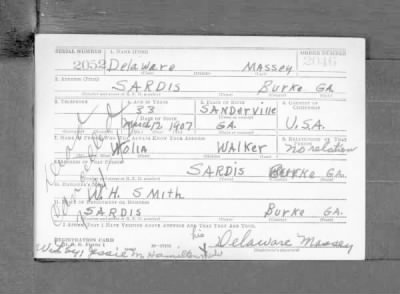 SERIAL NUMBER 1. NAME (Print) ORDER NUMBER
2052 Delaware Massey 2046
(First) (Middle) (Last)
2. ADDRESS (Print)
SARDIS Burke GA.
3. TELEPHONE 4. AGE IN YEARS 5. PLACE OF BIRTH 6. COUNTRY OF CITIZENSHIP
33 SANderville
DATE OF BIRTH
March 12 1907 GA. U.S.A.
7. NAME OF PERSON WHO WILL ALWAYS KNOW YOUR ADDRESS 8. RELATIONSHIP OF THAT PERSON
WALKER No relation
9. ADDRESS OF THAT PERSON
SARDIS Burke GA.
10. EMPLOYER'S NAME
W. H. SMith
11. PLACE OF EMPLOYMENT OR BUSINESS
SARDIS Burke GA.
I AFFIRM THAT I HAVE VERIFIED ABOVE ANSWERS AND THAT THEY ARE TRUE.
REGISTRATION CARD
his
Delaware X Massey
Wit by Jessie M. Hamilton